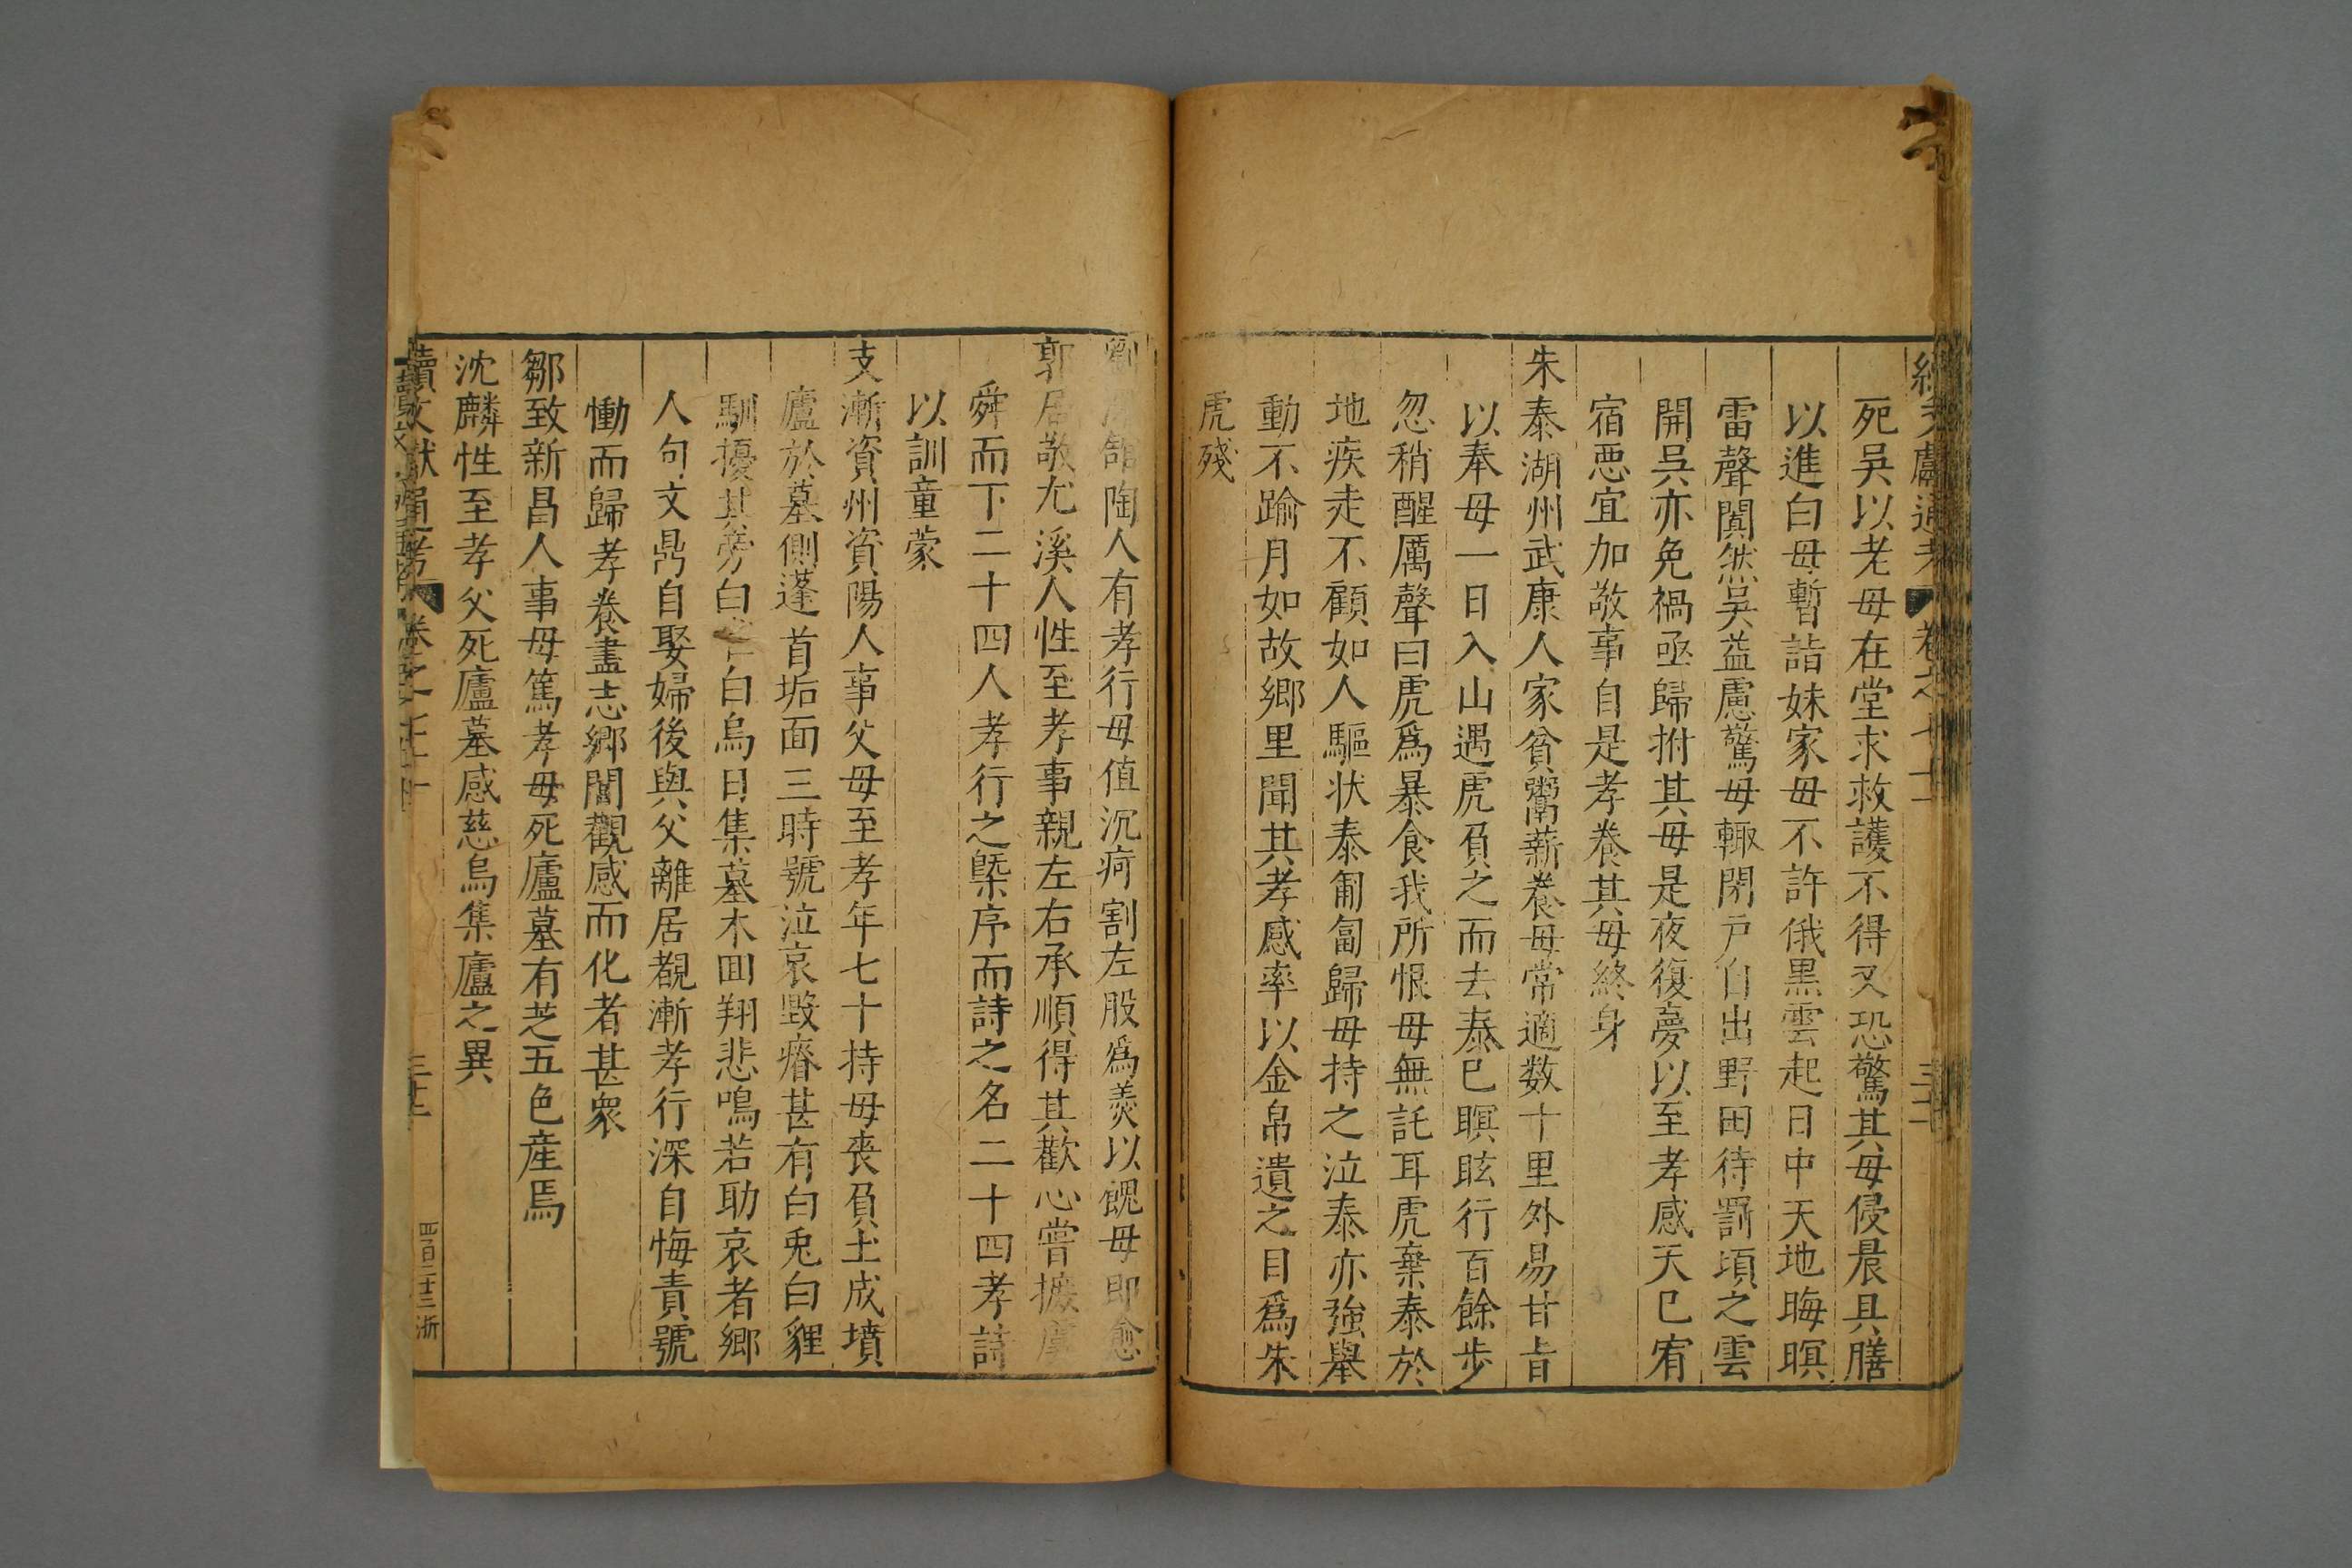 死吳以老母在堂求救護不得又恐驚其母侵晨具膳
以進白母暫詣妹家母不許俄黒雲起日中天地晦暝
雷聲闐然吳益慮驚母輙閉戸自出野田待罰頃之雲
開吳亦免禍亟歸拊其母是夜復夢以至孝感天已宥
宿惡宜加敬事自是孝養其母終身
朱泰湖州武康人家貧鬻薪養母常適数十里外易甘旨
以奉母一日入山遇虎負之而去泰已瞑眩行百餘步
忽稍醒厲聲曰虎爲暴食我所恨母無託耳虎棄泰於
地疾走不顧如人驅状泰匍匐歸母持之泣泰亦強舉
動不踰月如故鄉里聞其孝感率以金帛遺之目爲朱
虎殘
陶人有孝行母值沉疴割左股爲羙以餽母即愈
郭居敬尤溪人性至孝事親左右承順得其歡心嘗摭虞
舜而下二十四人孝行之槩序而詩之名二十四孝詩
以訓童蒙
支漸資州資陽人事父母至孝年七十持母喪負土成墳
廬於墓側蓬首垢面三時號泣哀毀瘠甚有白兎白貍
馴擾其旁白 白烏日集墓木囬翔悲鳴若助哀者鄉
人句文鼎自娶婦後與父離居覩漸孝行深自悔責號
慟而歸孝養盡志鄉閭觀感而化者甚衆
鄒致新昌人事母篤孝母死廬墓有芝五色産焉
沈麟性至孝父死廬墓感慈烏集廬之異
續文獻通考 卷之七十一
四百二十二 浙